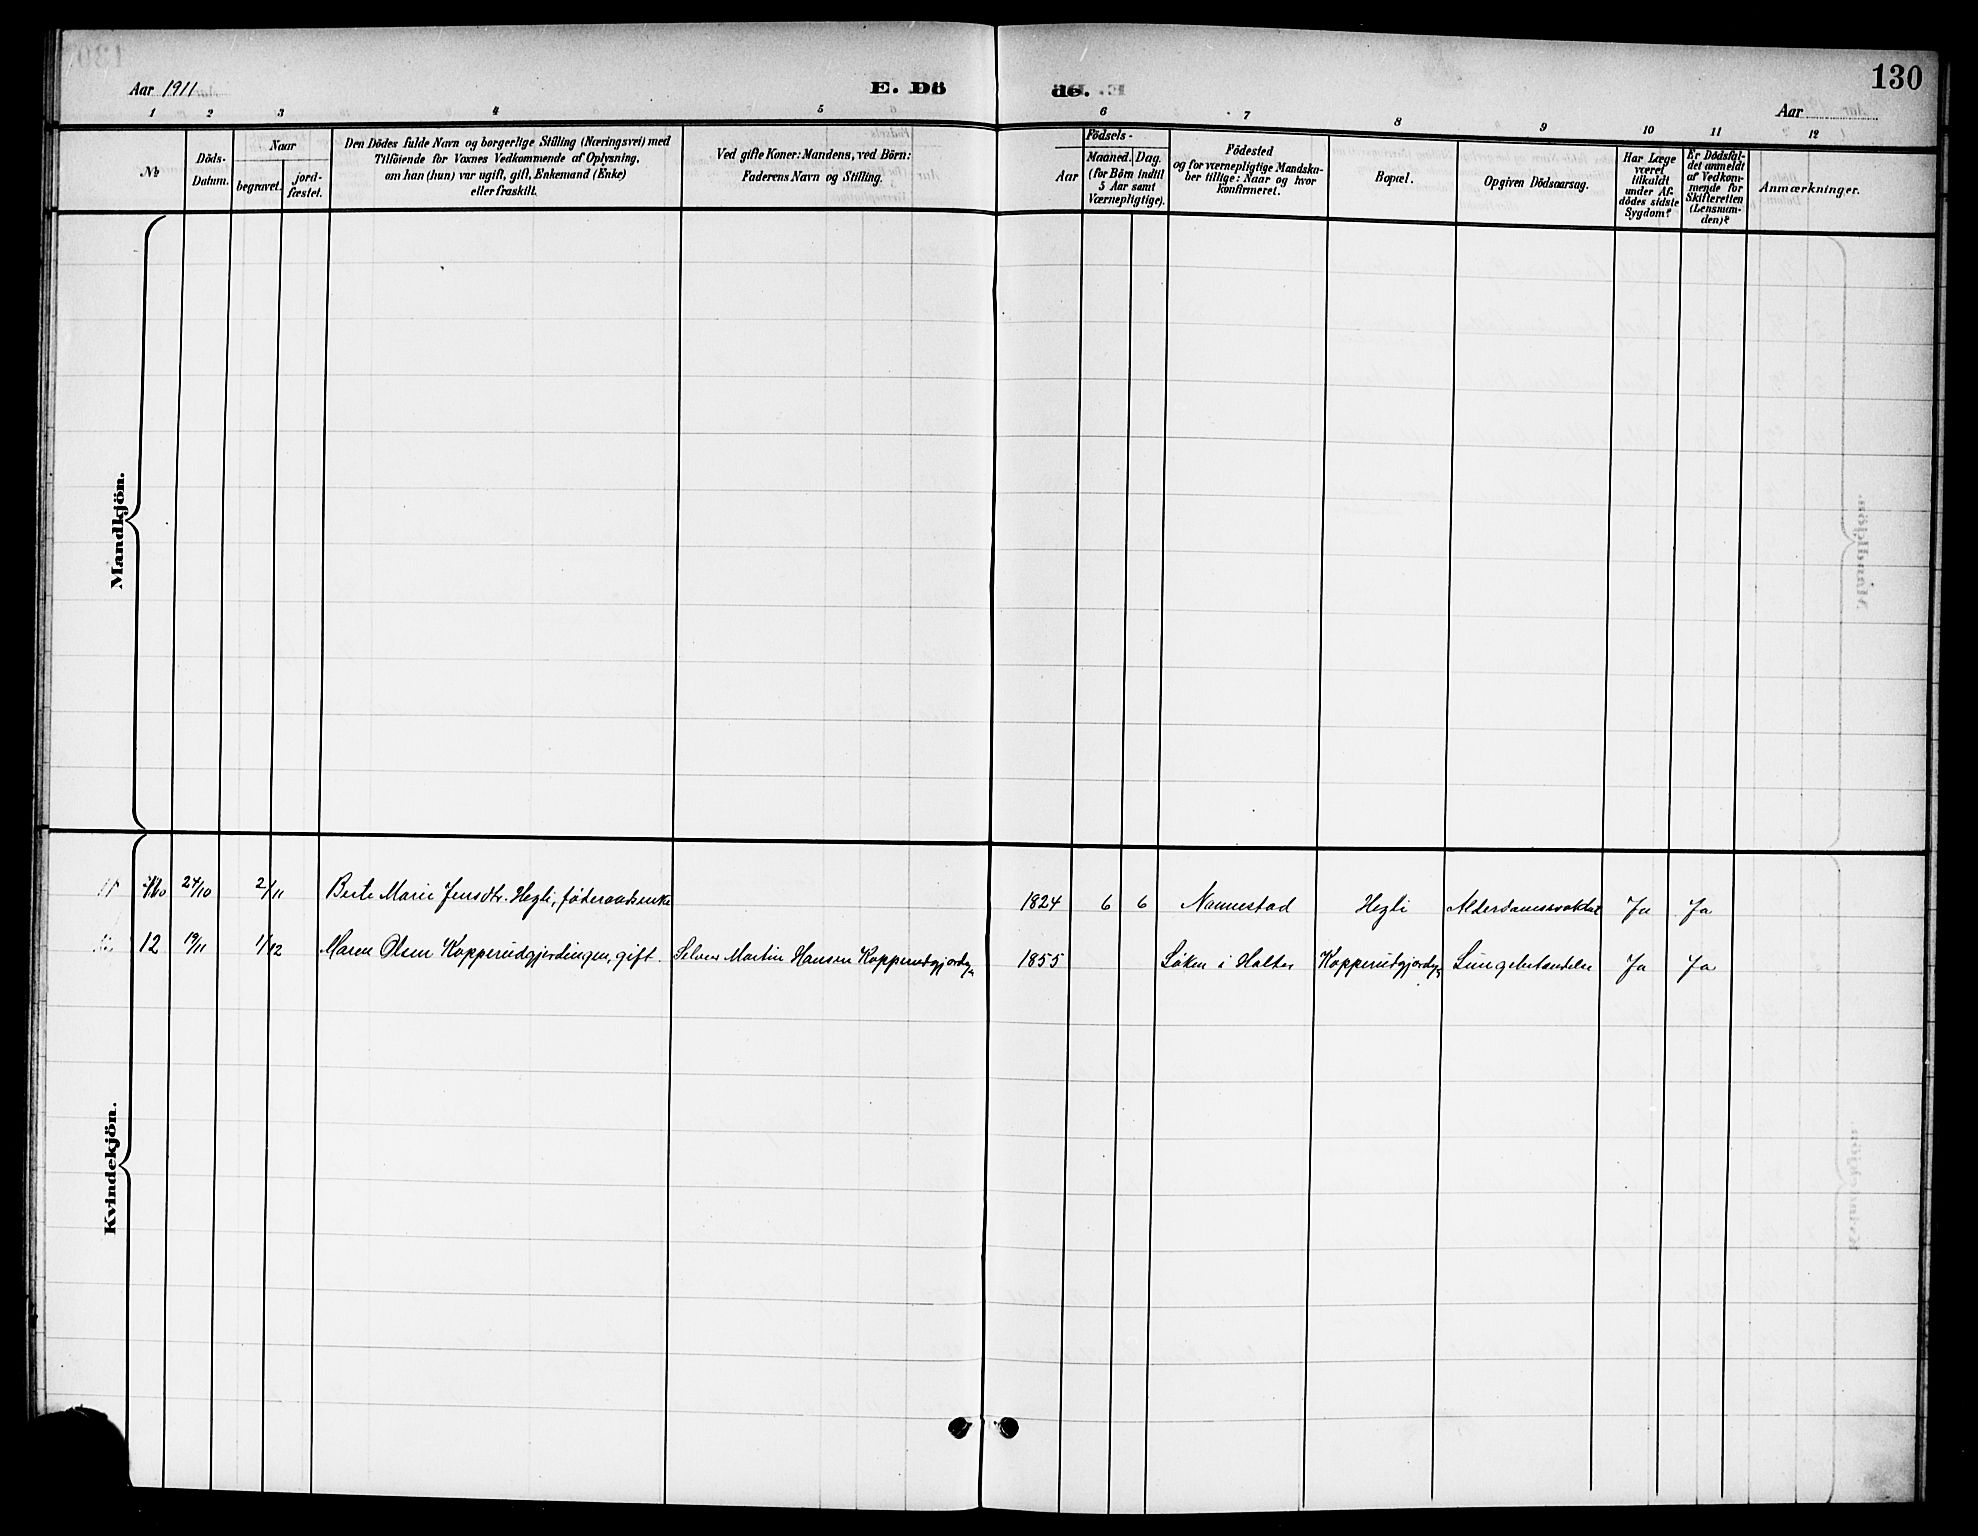 130
Aar 1911
E. Dö
de.
Aar
1 2 3 4 5 6 7 8 9 10 11 12
№
Döds-
Datum.
Naar
begravet.
jord-
fæstet.
Den Dödes fulde Navn og borgerlige Stilling (Næringsvei) med
Tilföiende for Voxnes Vedkommende af Oplysning,
om han (hun) var ugift, gift, Enkemand (Enke)
eller fraskilt.
Ved gifte Koner: Mandens, ved Börn:
Faderens Navn og Stilling.
Födsels-
Aar
Maaned. Dag.
(for Börn indtil
5 Aar samt
Værnepligtige).
Födested
og for værnepligtige Mandska-
ber tillige: Naar og hvor
konfirmeret.
Bopæl.
Opgiven Dödsaarsag.
Har Læge
været
tilkaldt
under Af-
dödes sidste
Sygdom?
Er Dödsfal-
det anmeldt
af Vedkom-
mende for
Skifteretten
(Lensman-
den)?
Anmærkninger.
Mandkjön.
Kvindekjön.
11 24/10 2/11 Berte Marie Jensdtr. Hegli, føderaadsenke 1824 6 6 Nannestad Hegli Alderdomssvakhet Ja Ja
12 19/11 1/12 Maren Olsen Kopperudgjerdingen, gift. Selvei Martin Hansen Kopperudgjerdgn 1855 Løken i Holter Kopperudgjerdgn Lungebetændelse Ja Ja